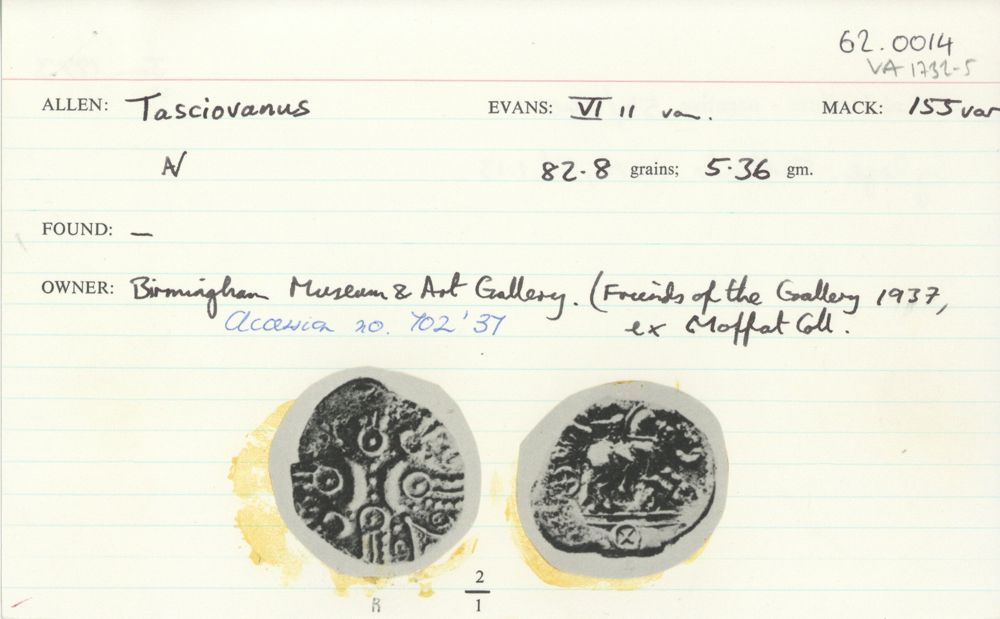 62.0014
VA 1732-5
ALLEN: Tasciovanus EVANS: VI 11 var. MACK: 155 var
A/ 82.8 grains; 5.36 gm.
FOUND: —
OWNER: Birmingham Museum & Art Gallery. (Friends of the Gallery 1937,
Accession no. 702'37 ex Moffat Coll.
2
R 1